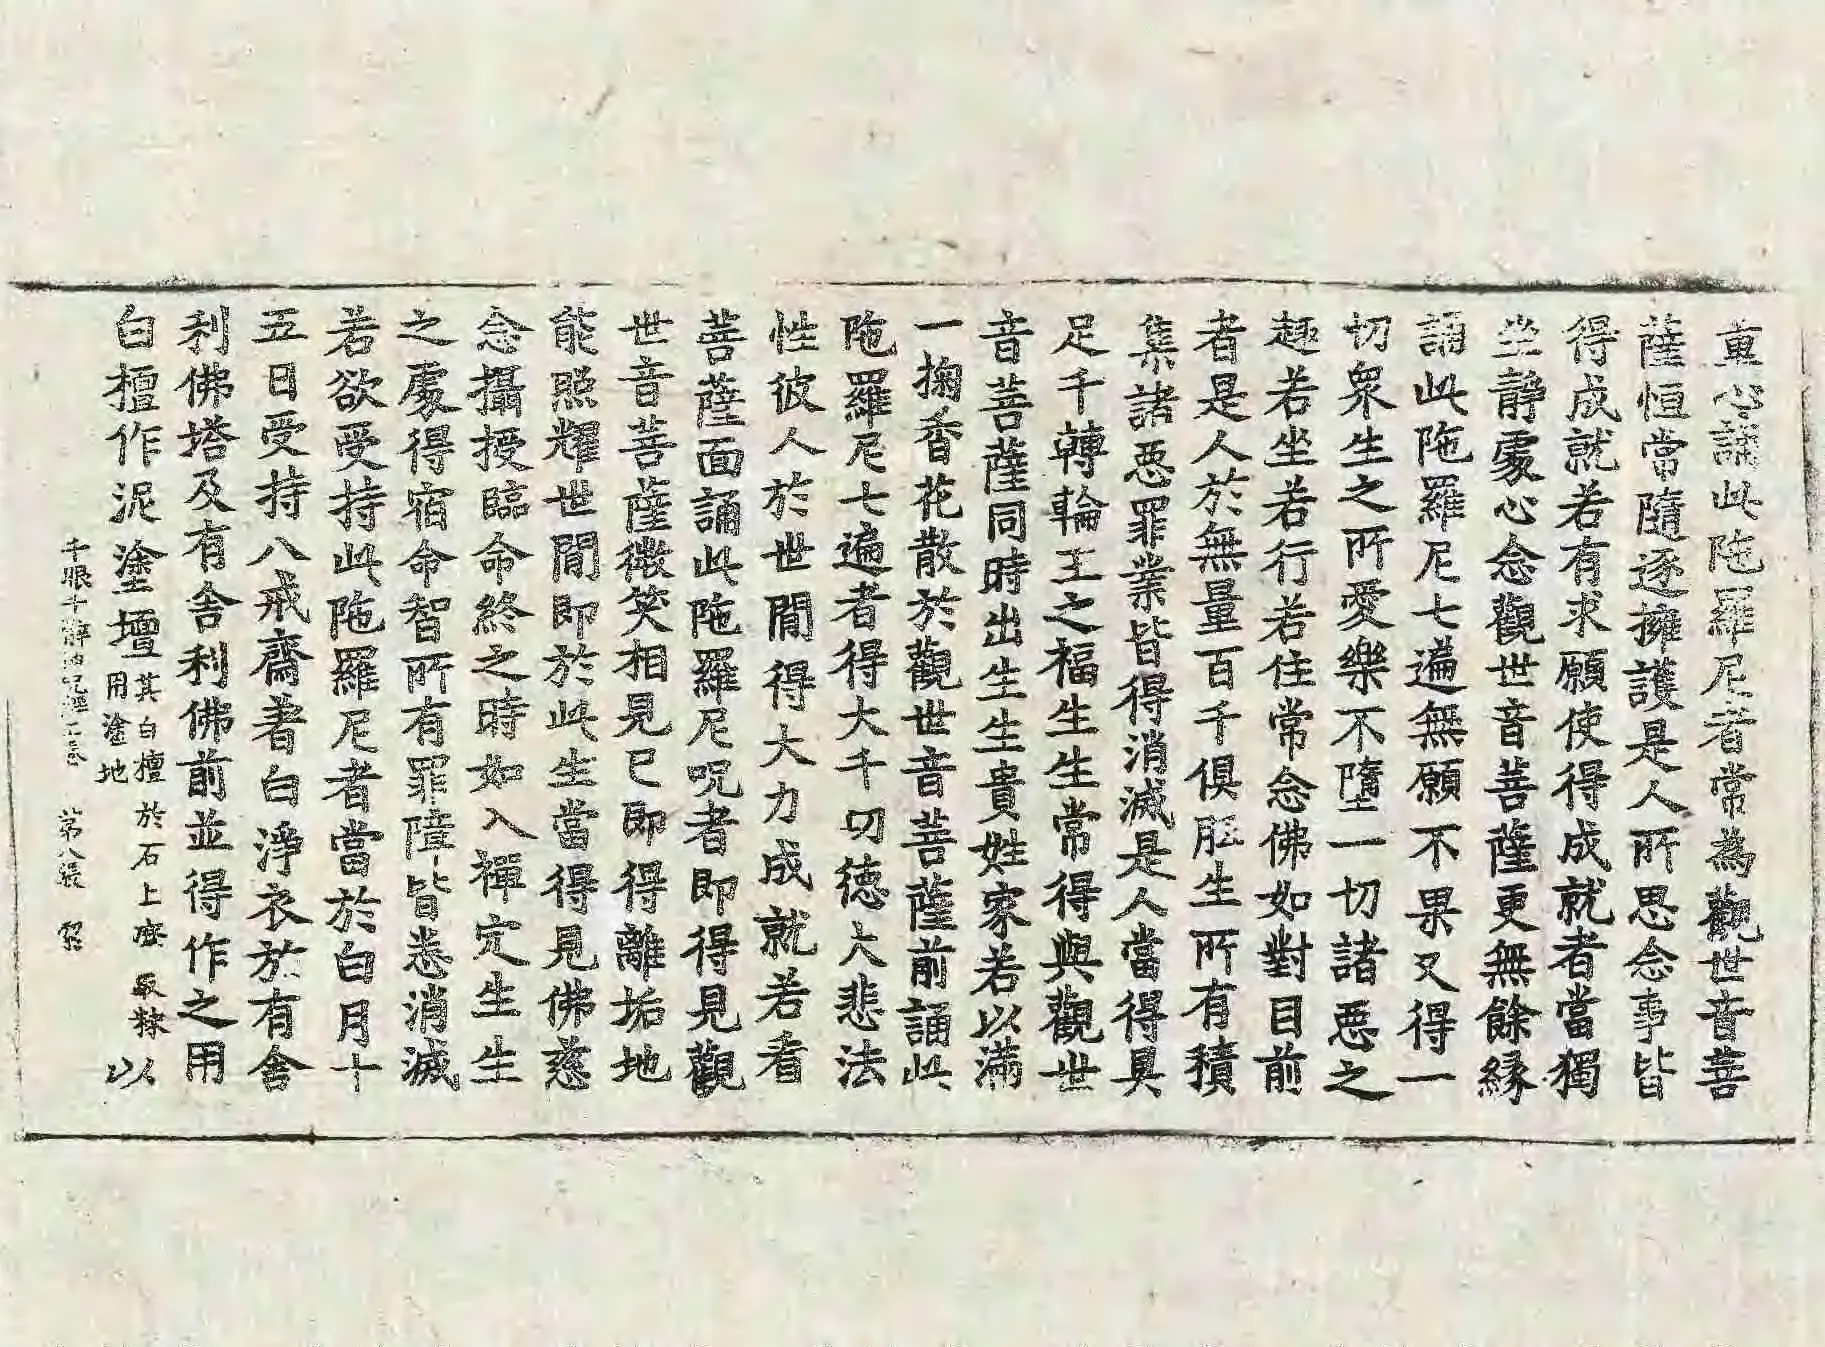 重心誦此陁羅尼者常為觀世音菩
薩恒當隨逐擁護是人所思念事皆
得成就若有求願使得成就者當獨
坐靜處心念觀世音菩薩更無餘緣
誦此陁羅尼七遍無願不果又得一
切衆生之所愛樂不墮一切諸惡之
趣若坐若行若住常念佛如對目前
者是人於無量百千俱胝生所有積
集諸惡罪業皆得消滅是人當得具
足千轉輪王之福生生常得與觀世
音菩薩同時出生生貴姓家若以滿
一掬香花散於觀世音菩薩前誦此
陁羅尼七遍者得大千功德大悲法
性彼人於世間得大力成就若看
菩薩面誦此陁羅尼呪者即得見觀
世音菩薩微笑相見已即得離垢地
能照耀世間即於此生當得見佛慈
念攝授臨命終之時如入禪定生生
之處得宿命智所有罪障皆悉消滅
若欲受持此陁羅尼者當於白月十
五日受持八戒齋著白淨衣於有舍
利佛塔及有舍利佛前並得作之用
白檀作泥塗壇其白檀於石上磨取粽用塗地以
千眼千臂神呪經上卷 第八張